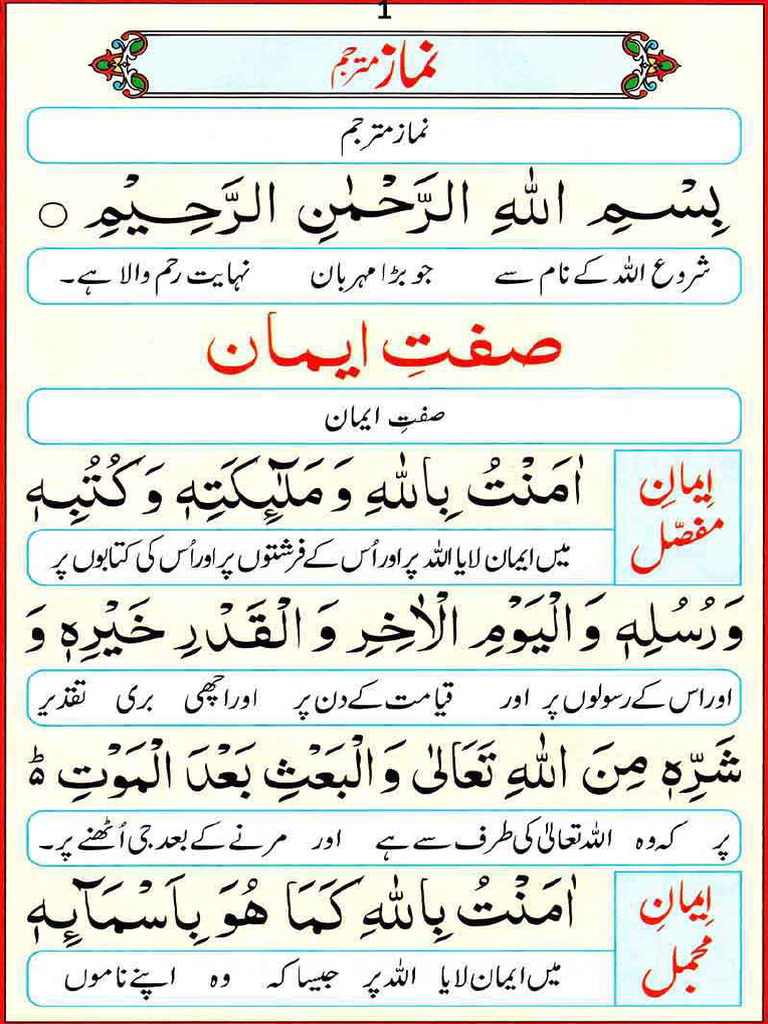 1
نماز مترجم
نماز مترجم
بِسْمِ اللّٰهِ الرَّحْمٰنِ الرَّحِيْمِ ○
شروع اللہ کے نام سے جو بڑا مہربان نہایت رحم والا ہے۔
صفتِ ایمان
صفتِ ایمان
ایمانِ مفصّل
اٰمَنْتُ بِاللّٰهِ وَ مَلٰٓئِكَتِهٖ وَ كُتُبِهٖ
میں ایمان لایا اللہ پر اور اُس کے فرشتوں پر اور اُس کی کتابوں پر
وَ رُسُلِهٖ وَ الْيَوْمِ الْاٰخِرِ وَ الْقَدْرِ خَيْرِهٖ وَ
اور اس کے رسولوں پر اور قیامت کے دن پر اور اچھی بری تقدیر
شَرِّهٖ مِنَ اللّٰهِ تَعَالٰی وَ الْبَعْثِ بَعْدَ الْمَوْتِ ؕ
پر کہ وہ اللہ تعالیٰ کی طرف سے ہے اور مرنے کے بعد جی اُٹھنے پر۔
اِیمانِ مجمل
اٰمَنْتُ بِاللّٰهِ كَمَا هُوَ بِاَسْمَآئِهٖ
میں ایمان لایا اللہ پر جیسا کہ وہ اپنے ناموں